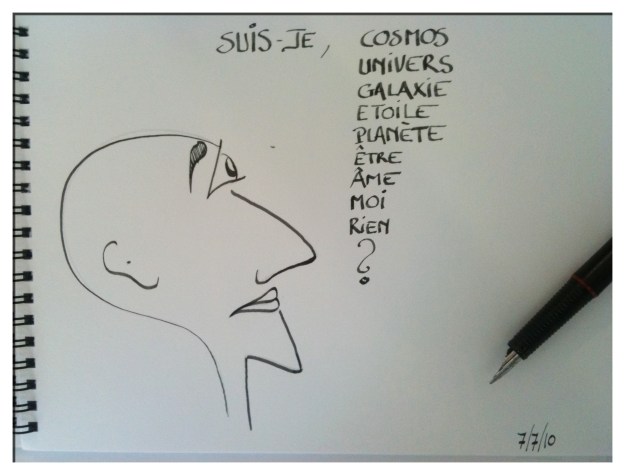 SUIS-JE, COSMOS
UNIVERS
GALAXIE
ETOILE
PLANÈTE
ÊTRE
ÂME
MOI
RIEN
?
7/7/10